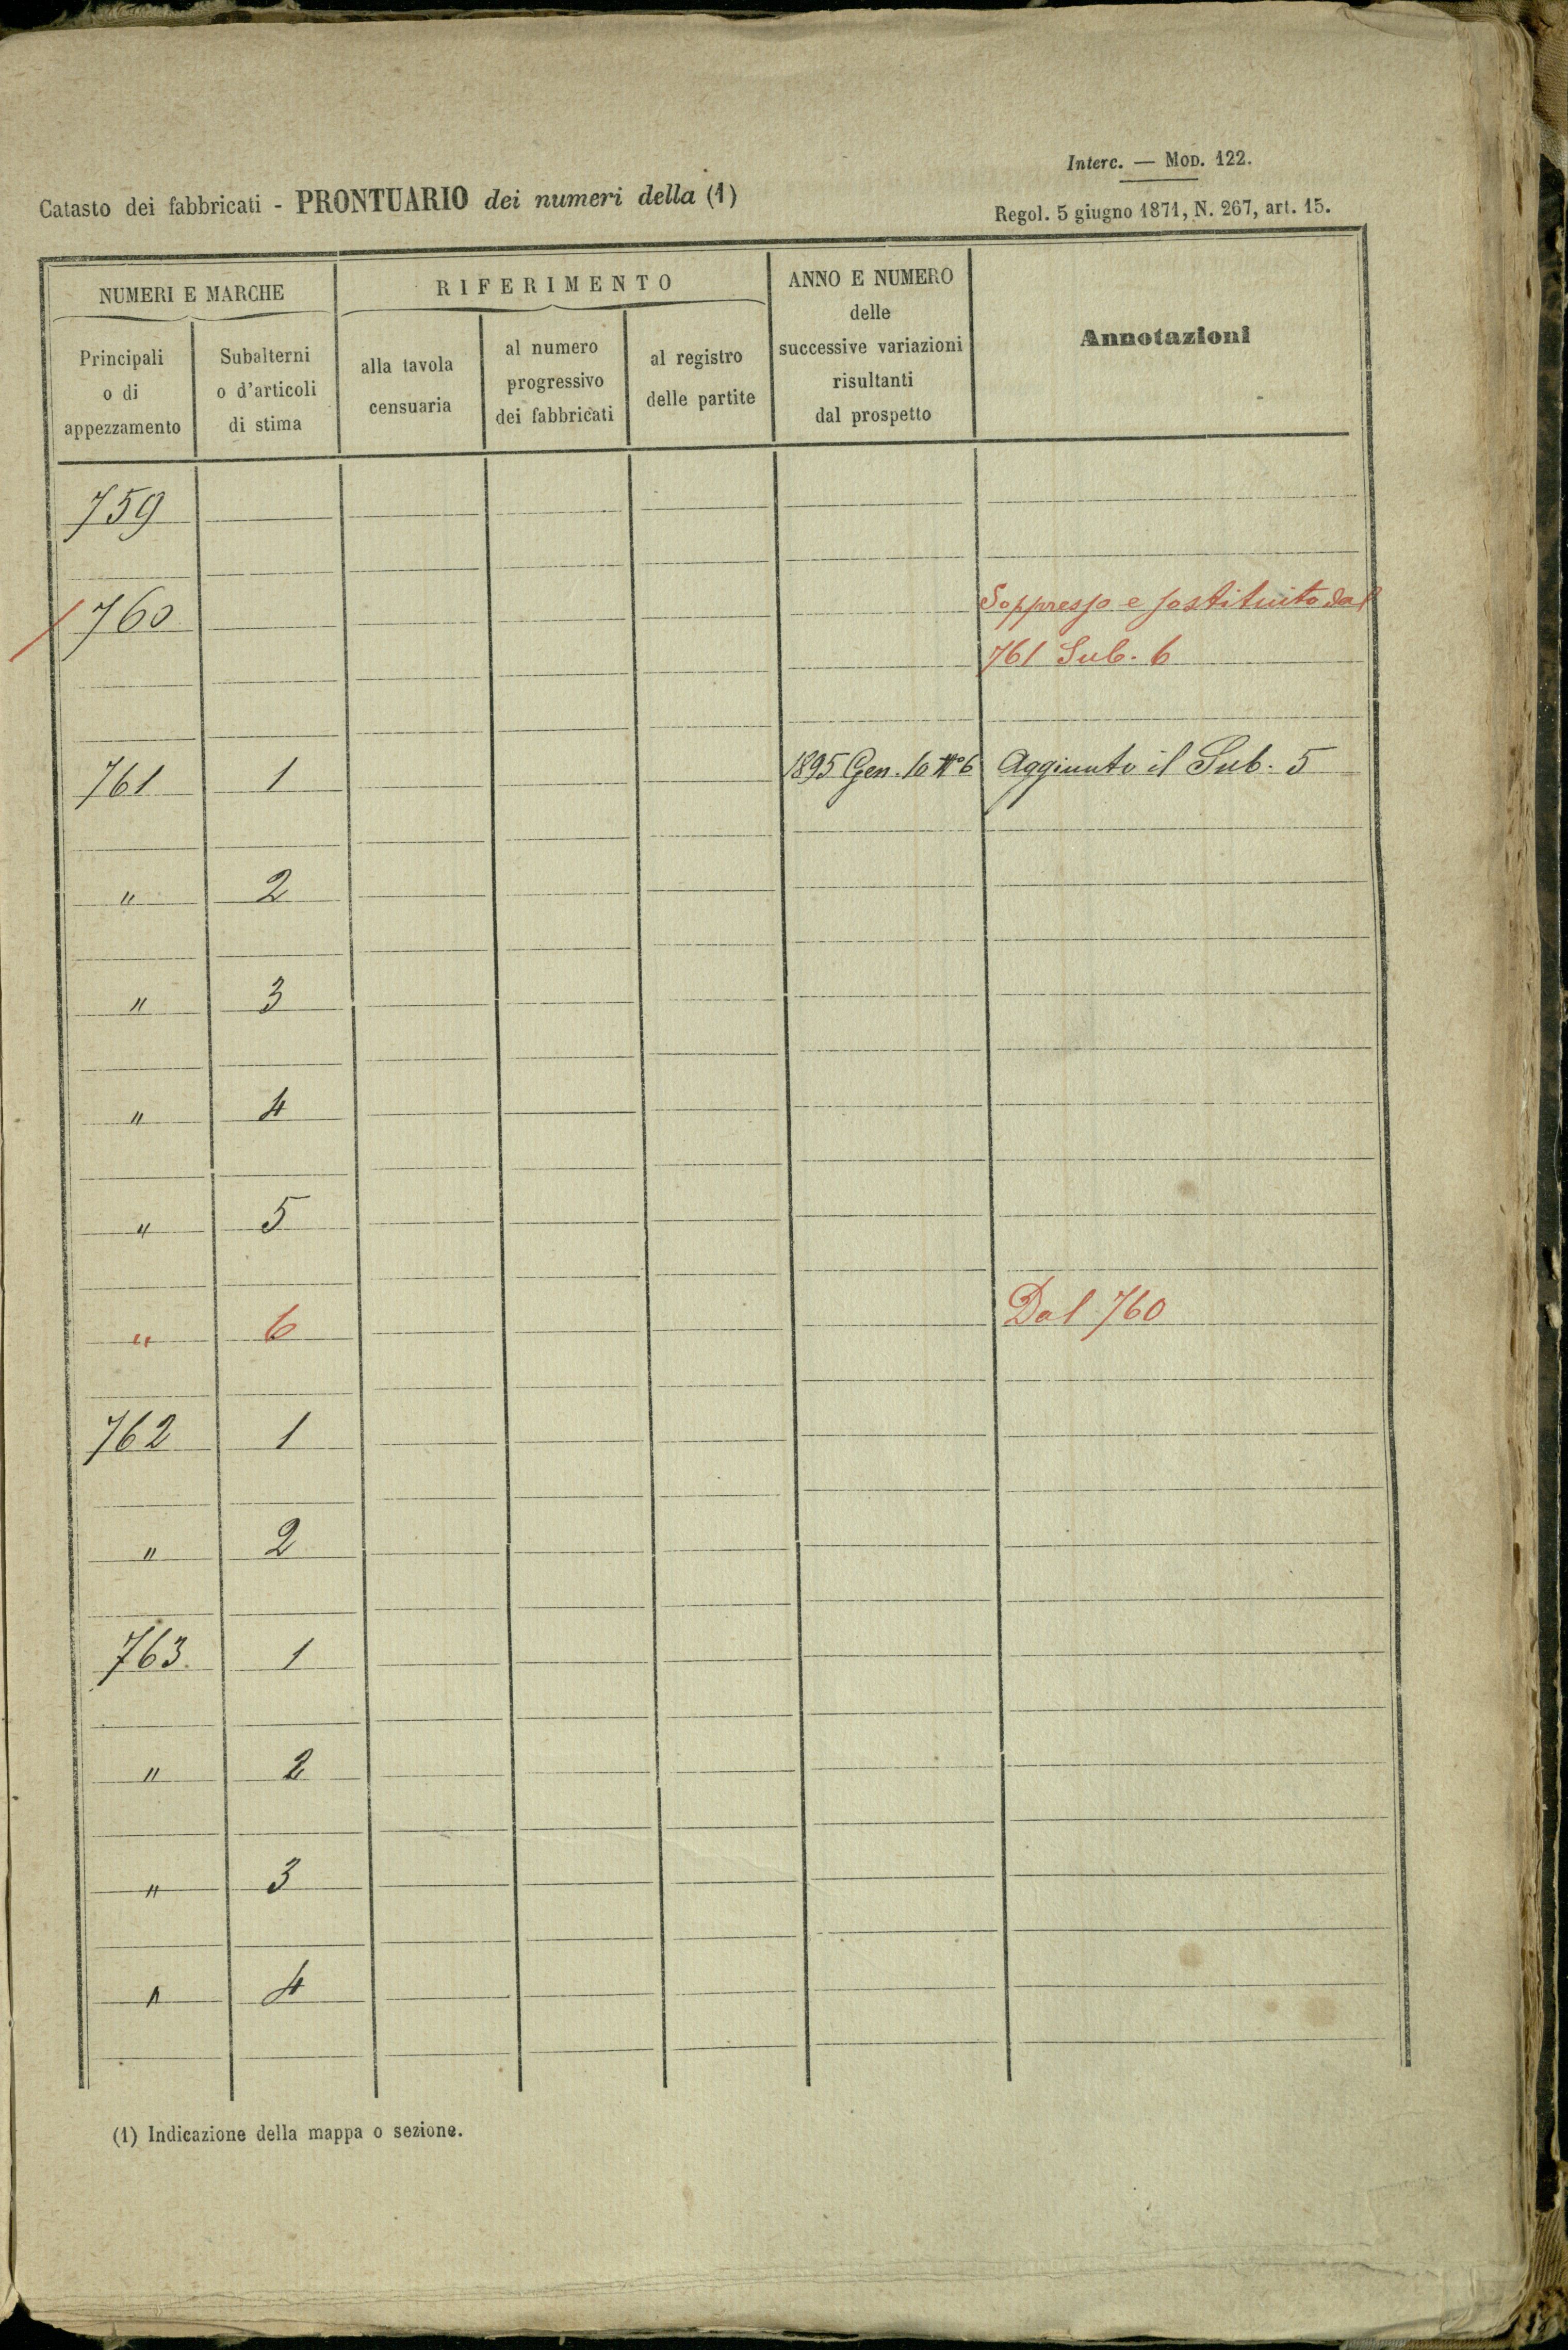 Interc. — Mod. 122.
Catasto dei fabbricati - PRONTUARIO dei numeri della (1)
Regol. 5 giugno 1871, N. 267, art. 15.
NUMERI E MARCHE
RIFERIMENTO
ANNO E NUMERO
delle
successive variazioni
risultanti
dal prospetto
Annotazioni
Principali
o di
appezzamento
Subalterni
o d'articoli
di stima
alla tavola
censuaria
al numero
progressivo
dei fabbricati
al registro
delle partite
759
760 Soppresso e sostituito dal
761 Sub. 6
761 1 1895 Gen. 10 N° 6 Aggiunto il Sub. 5
" 2
" 3
" 4
" 5
" 6 Dal 760
762 1
" 2
763 1
" 2
" 3
" 4
(1) Indicazione della mappa o sezione.